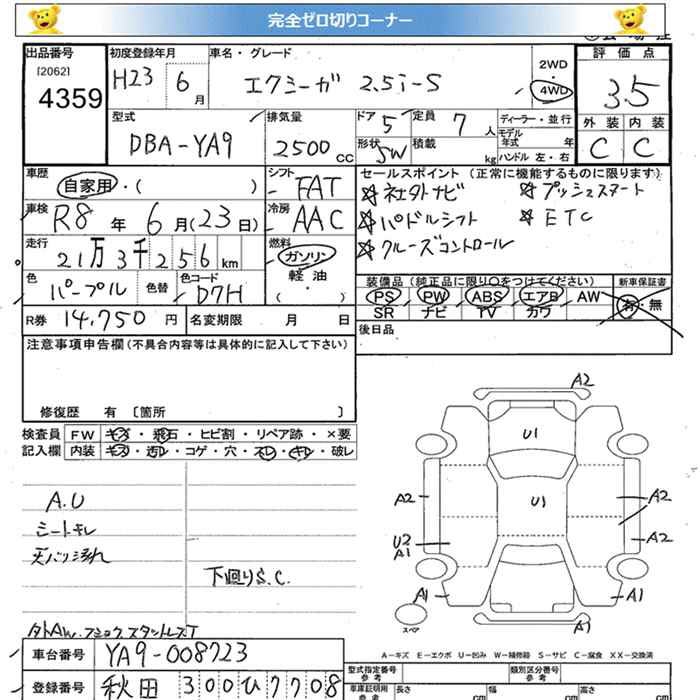 完全ゼロ切りコーナー
出品番号 初度登録年月 車名・グレード
[2062] 4359 H23 6月 エクシーガ 2.5i-S 2WD・4WD
評価点 3.5
外装 内装
C C
型式 排気量 ドア 定員 ディーラー・並行
DBA-YA9 2500cc 5 7人 モデル年式 年
形状 積載 ハンドル 左・右
SW kg
車歴 シフト セールスポイント (正常に機能するものに限ります)
自家用・( ) FAT 社外ナビ プッシュスタート
車検 冷房 パドルシフト ETC
R8年6月(23日) AAC クルーズコントロール
走行 燃料
21万3千256km ガソリン
軽油
( ・ )
色 色替 色コード
パープル D7H
装備品 (純正品に限り○をつけてください) 新車保証書
PS PW ABS エアB AW 有・無
SR ナビ TV カワ
R券 14,750円 名変期限 月 日 後日品
注意事項申告欄(不具合内容等は具体的に記入して下さい)
修復歴 有 〔箇所 〕
検査員 FW キズ・飛石・ヒビ割・リペア跡・×要
記入欄 内装 キズ・汚レ・コゲ・穴・スレ・キレ・破レ
A.U
シートキレ
天バリ汚れ
下回りS.C.
A2
U1
U1
A2 A2
U2 A2
A1
A1 A1
スペア A1
A-キズ E-エクボ U-凹み W-補修跡 S-サビ C-腐食 XX-交換済
車台番号 YA9-008723
登録番号 秋田 300ひ7708
型式指定番号 参考 類別区分番号 参考
車庫証明用 参考 長さ cm 幅 cm 高さ cm